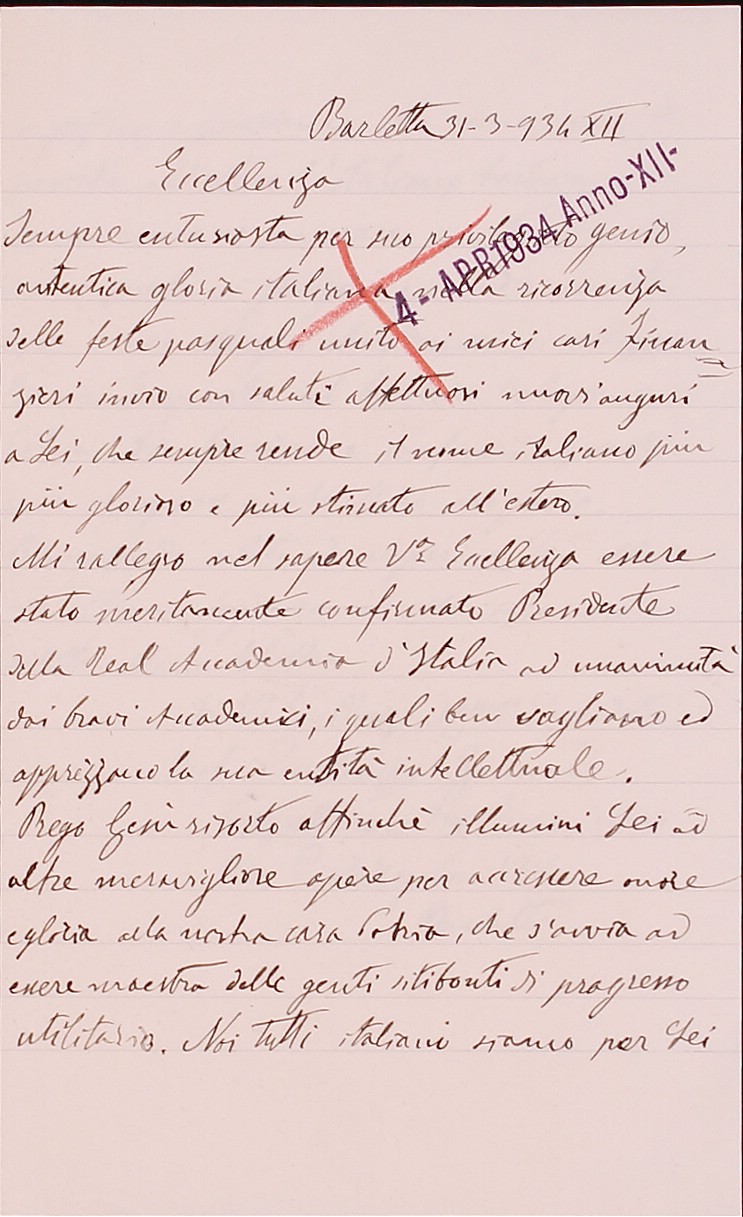 Barletta 31-3-934 XII
Eccellenza
4 - APR 1934 Anno-XII-
Sempre entusiasta per suo privilegiato genio,
autentica gloria italiana, nella ricorrenza
delle feste pasquali unito ai miei cari Finan=
zieri invio con saluti affettuosi nuovi auguri
a Lei, che sempre rende il nome italiano più
più glorioso e più stimato all'estero.
Mi rallegro nel sapere Vª Eccellenza essere
stato meritamente confirmato Presidente
della Real Accademia d'Italia ad unanimità
dai bravi Accademici, i quali ben vagliano ed
apprezzano la sua entità intellettuale.
Prego Gesù risorto affinchè illumini Lei ad
altre meravigliose opere per accrescere onore
e gloria alla nostra cara Patria, che s'avvia ad
essere maestra delle genti sitibonti di progresso
utilitario. Noi tutti italiani siamo per Lei